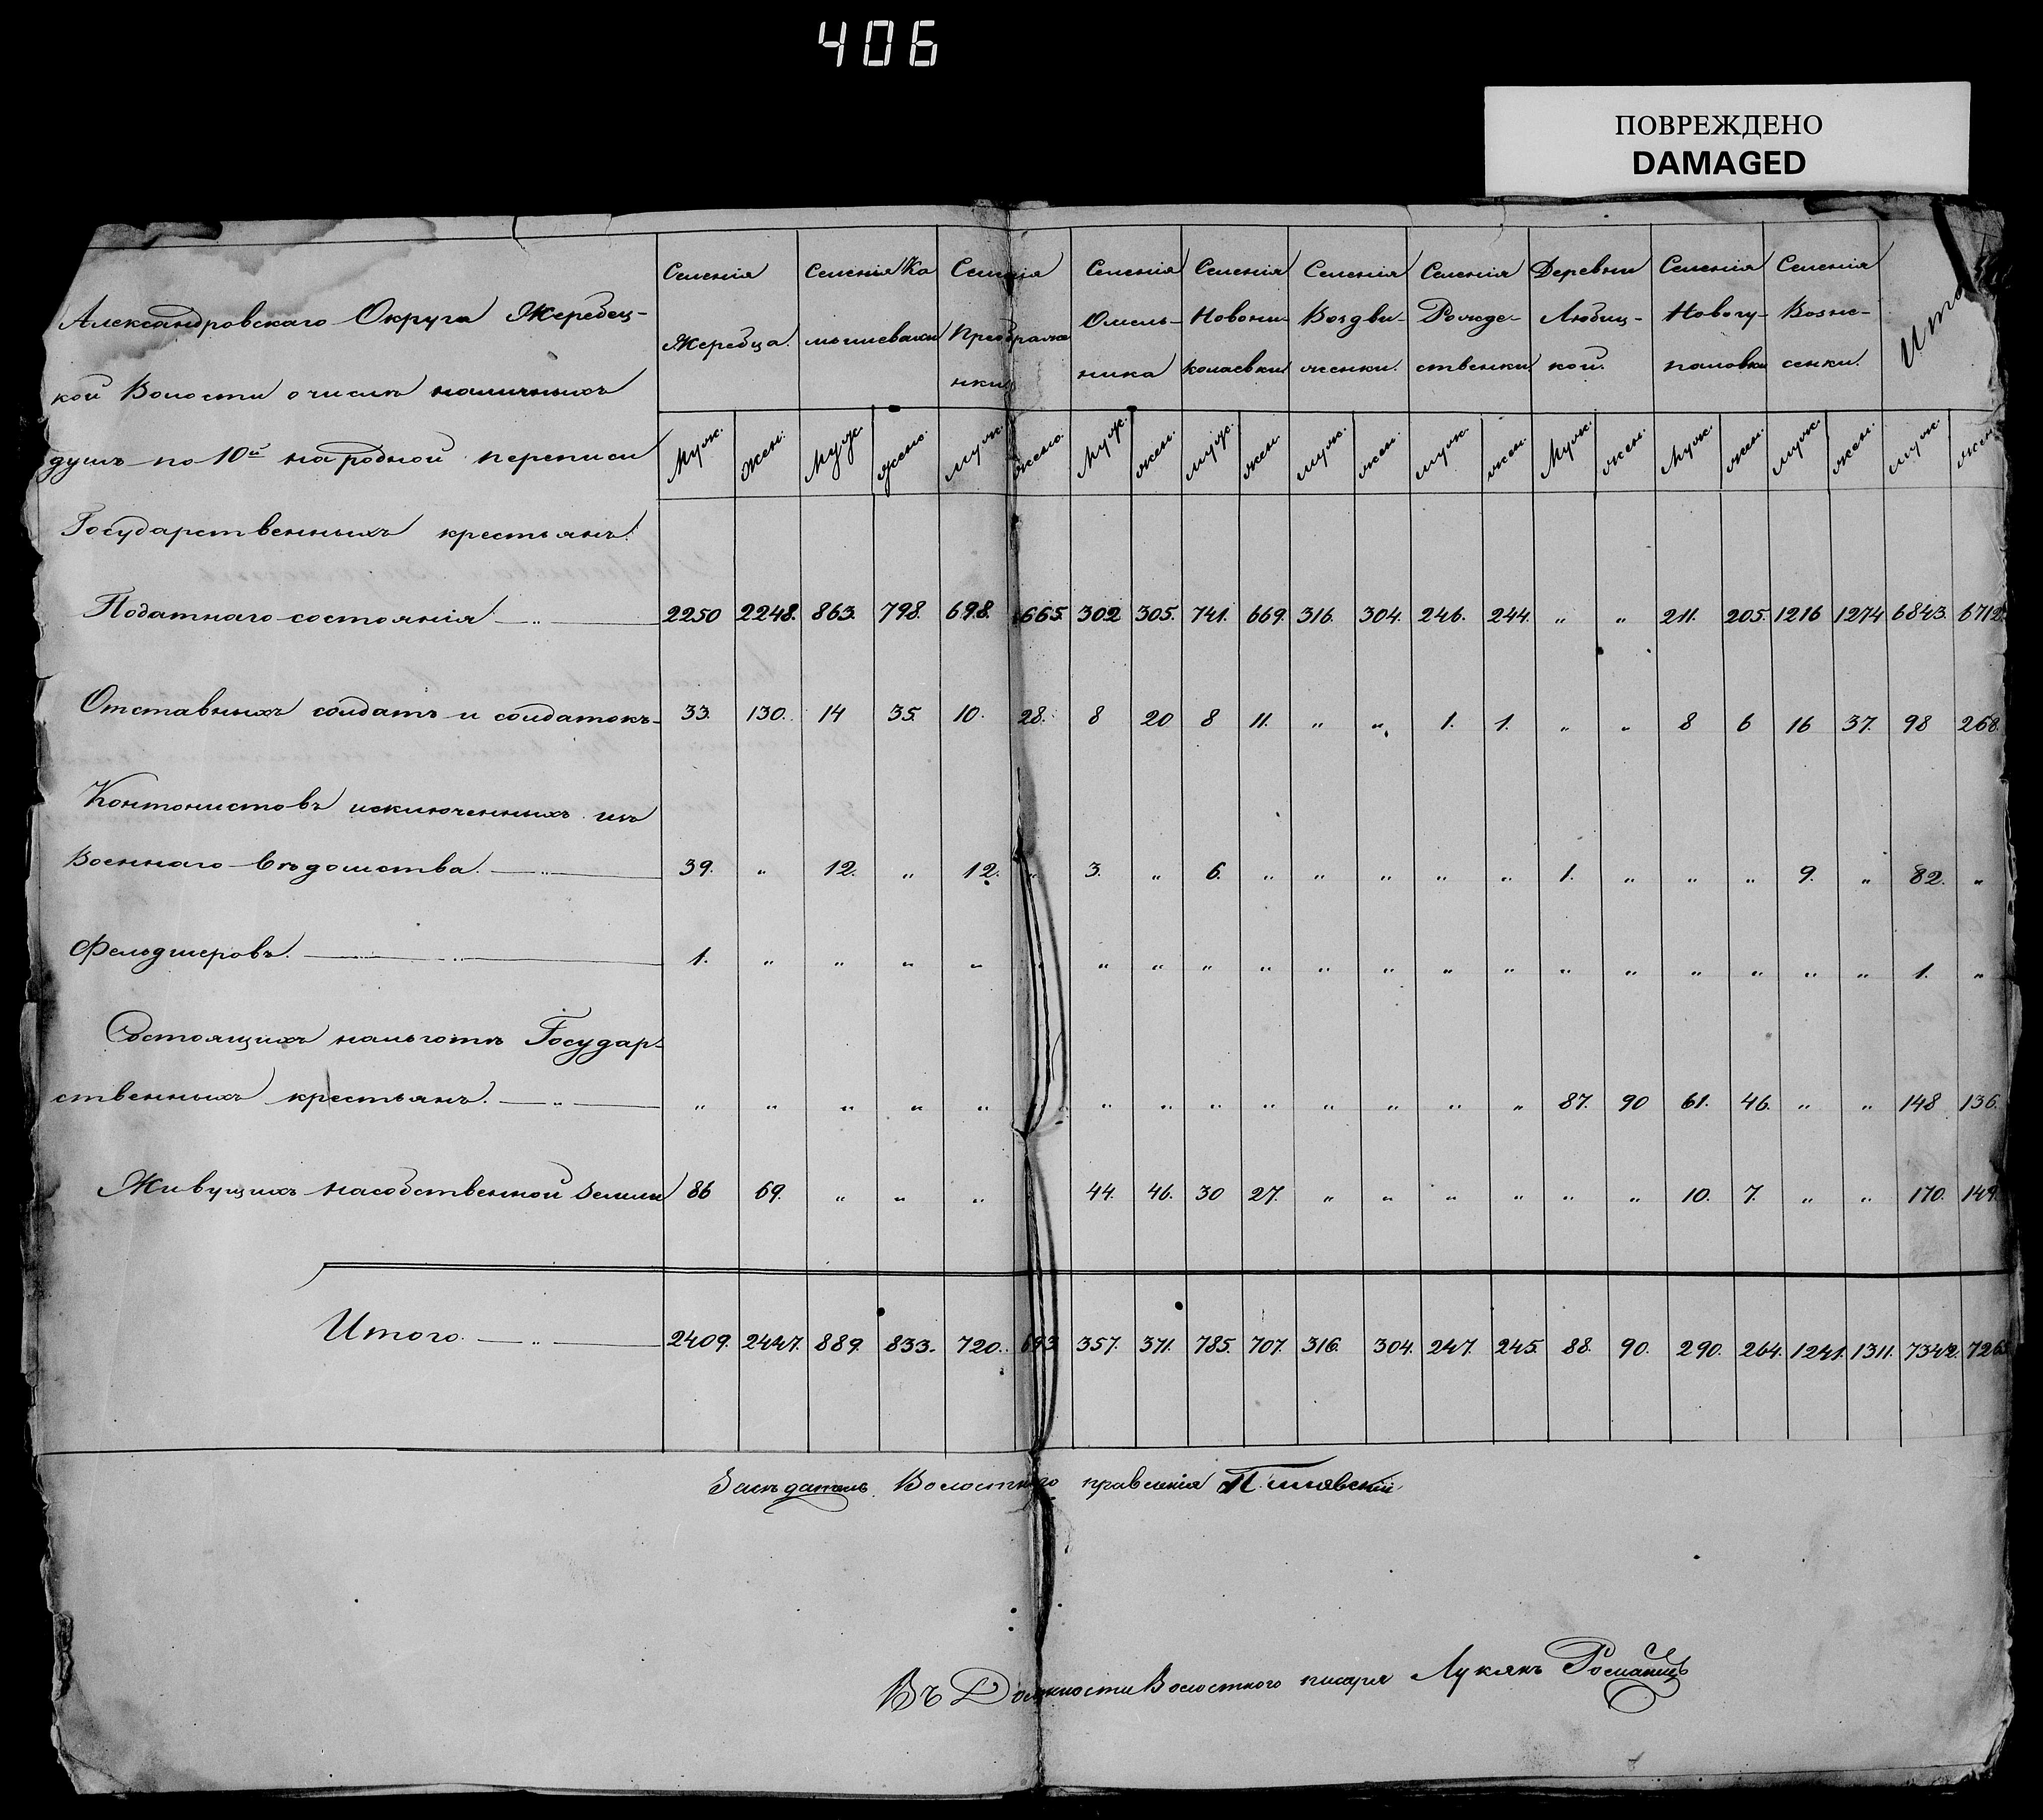 406
ПОВРЕЖДЕНО
DAMAGED
Александровскаго Округа Жеребец-
кой Волости о числѣ наличныхъ
душъ по 10й народной переписи
Селенія Жеребца.
Селенія Камышевахи
Селенія Преображенки
Селенія Омельника
Селенія Новониколаевки
Селенія Воздвиженки.
Селенія Рождественки
Деревни Любицкой.
Селенія Новогупаловки
Селенія Вознесенки.
Муж. жен. Муж. жено. муж. жено. Муж. жен. муж. жен. муж. жен. муж. жен. Муж. жен. Муж. жен. муж. жен. муж. жен.
Государственныхъ крестьянъ.
Податнаго состоянія 2250 2248. 863. 798. 698. 665. 302 305. 741. 669. 316. 304. 246. 244. " " 211. 205. 1216 1274 6843. 6712.
Отставныхъ солдатъ и солдатокъ 33. 130. 14 35. 10. 28. 8 20 8 11. " " 1. 1. " " 8 6 16 37. 98 268.
Контонистовъ исключенныхъ изъ
Военнаго вѣдомства. 39. " 12. " 12. " 3. " 6. " " " " " 1. " " " 9. " 82. "
Фельдшеровъ. 1. " " " " " " " " " " " " " " " " " " 1. "
Состоящихъ нальготѣ Государ-
ственныхъ крестьянъ. " " " " " " " " " " " " " 87. 90 61. 46. " " 148 136.
Живущихъ насобственной Земли 86 69. " " " 44. 46. 30 27. " " " " " " 10. 7. " " 170. 149.
Итого. 2409. 2447. 889. 833. 720. 693 357. 371. 785. 707. 316. 304. 247. 245. 88. 90. 290. 264. 1241. 1311. 7342. 7265
Засѣдатель Волостного правленія
Въ Должности Волостного писаря Лукянъ